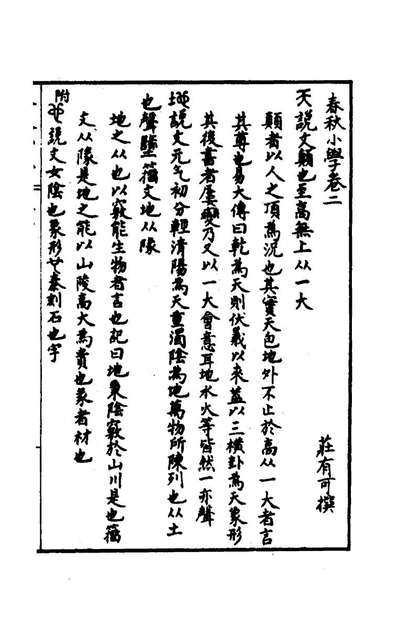 春秋小學卷二
莊有可撰
天說文顛也至高無上从一大
顛者以人之頂為況也其實天包地外不止於高从一大者言
其尊也易大傳曰乾為天則伏羲以來葢以三橫卦為天象形
其後書者屢變乃又以一大會意耳地水火等皆然一亦聲
地說文元气初分輕清陽為天重濁陰為地萬物所陳列也从土
也聲墬籀文地从隊
地之从也以竅能生物者言也記曰地秉陰竅於山川是也籀
文从隊是地之能以山陵高大為貴也象者材也
附也說文女陰也象形秦刻石也字